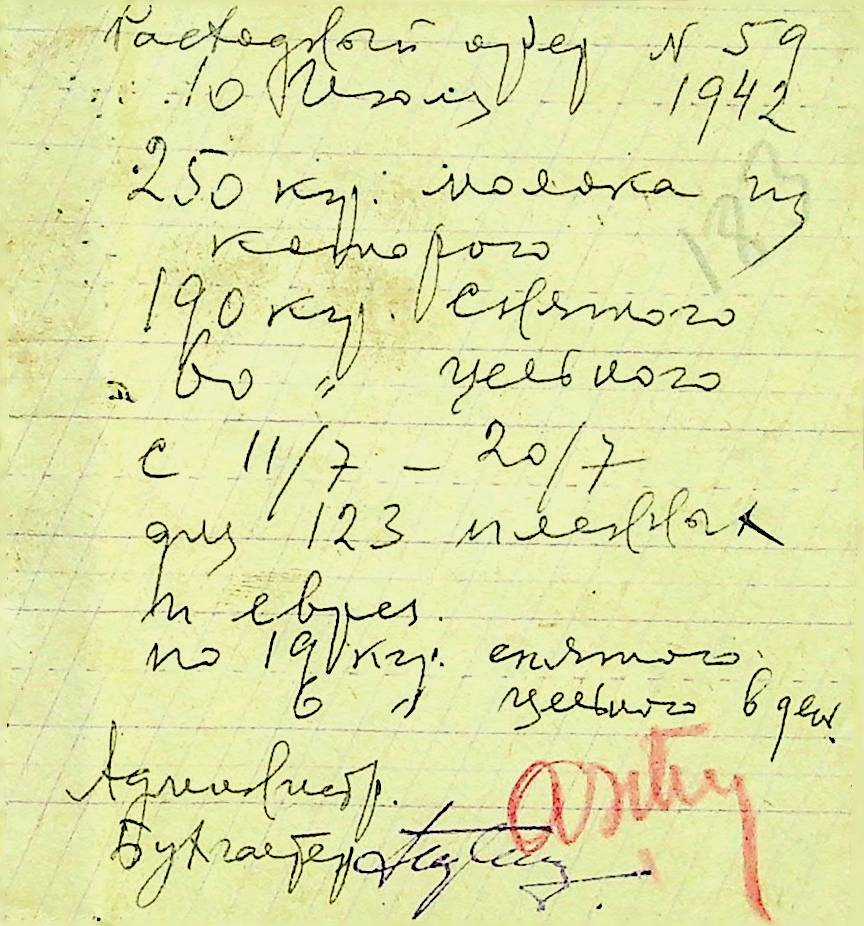 Расходный ордер N 59
10 Июля 1942
250 кгр. молока из
которого
190 кгр. снятого
60 " цельного
с 11/7 – 20/7
для 123 пленных
и евреев.
по 19 кгр. снятого
6 " цельного в день.
Администр.
Бухгалтер
123